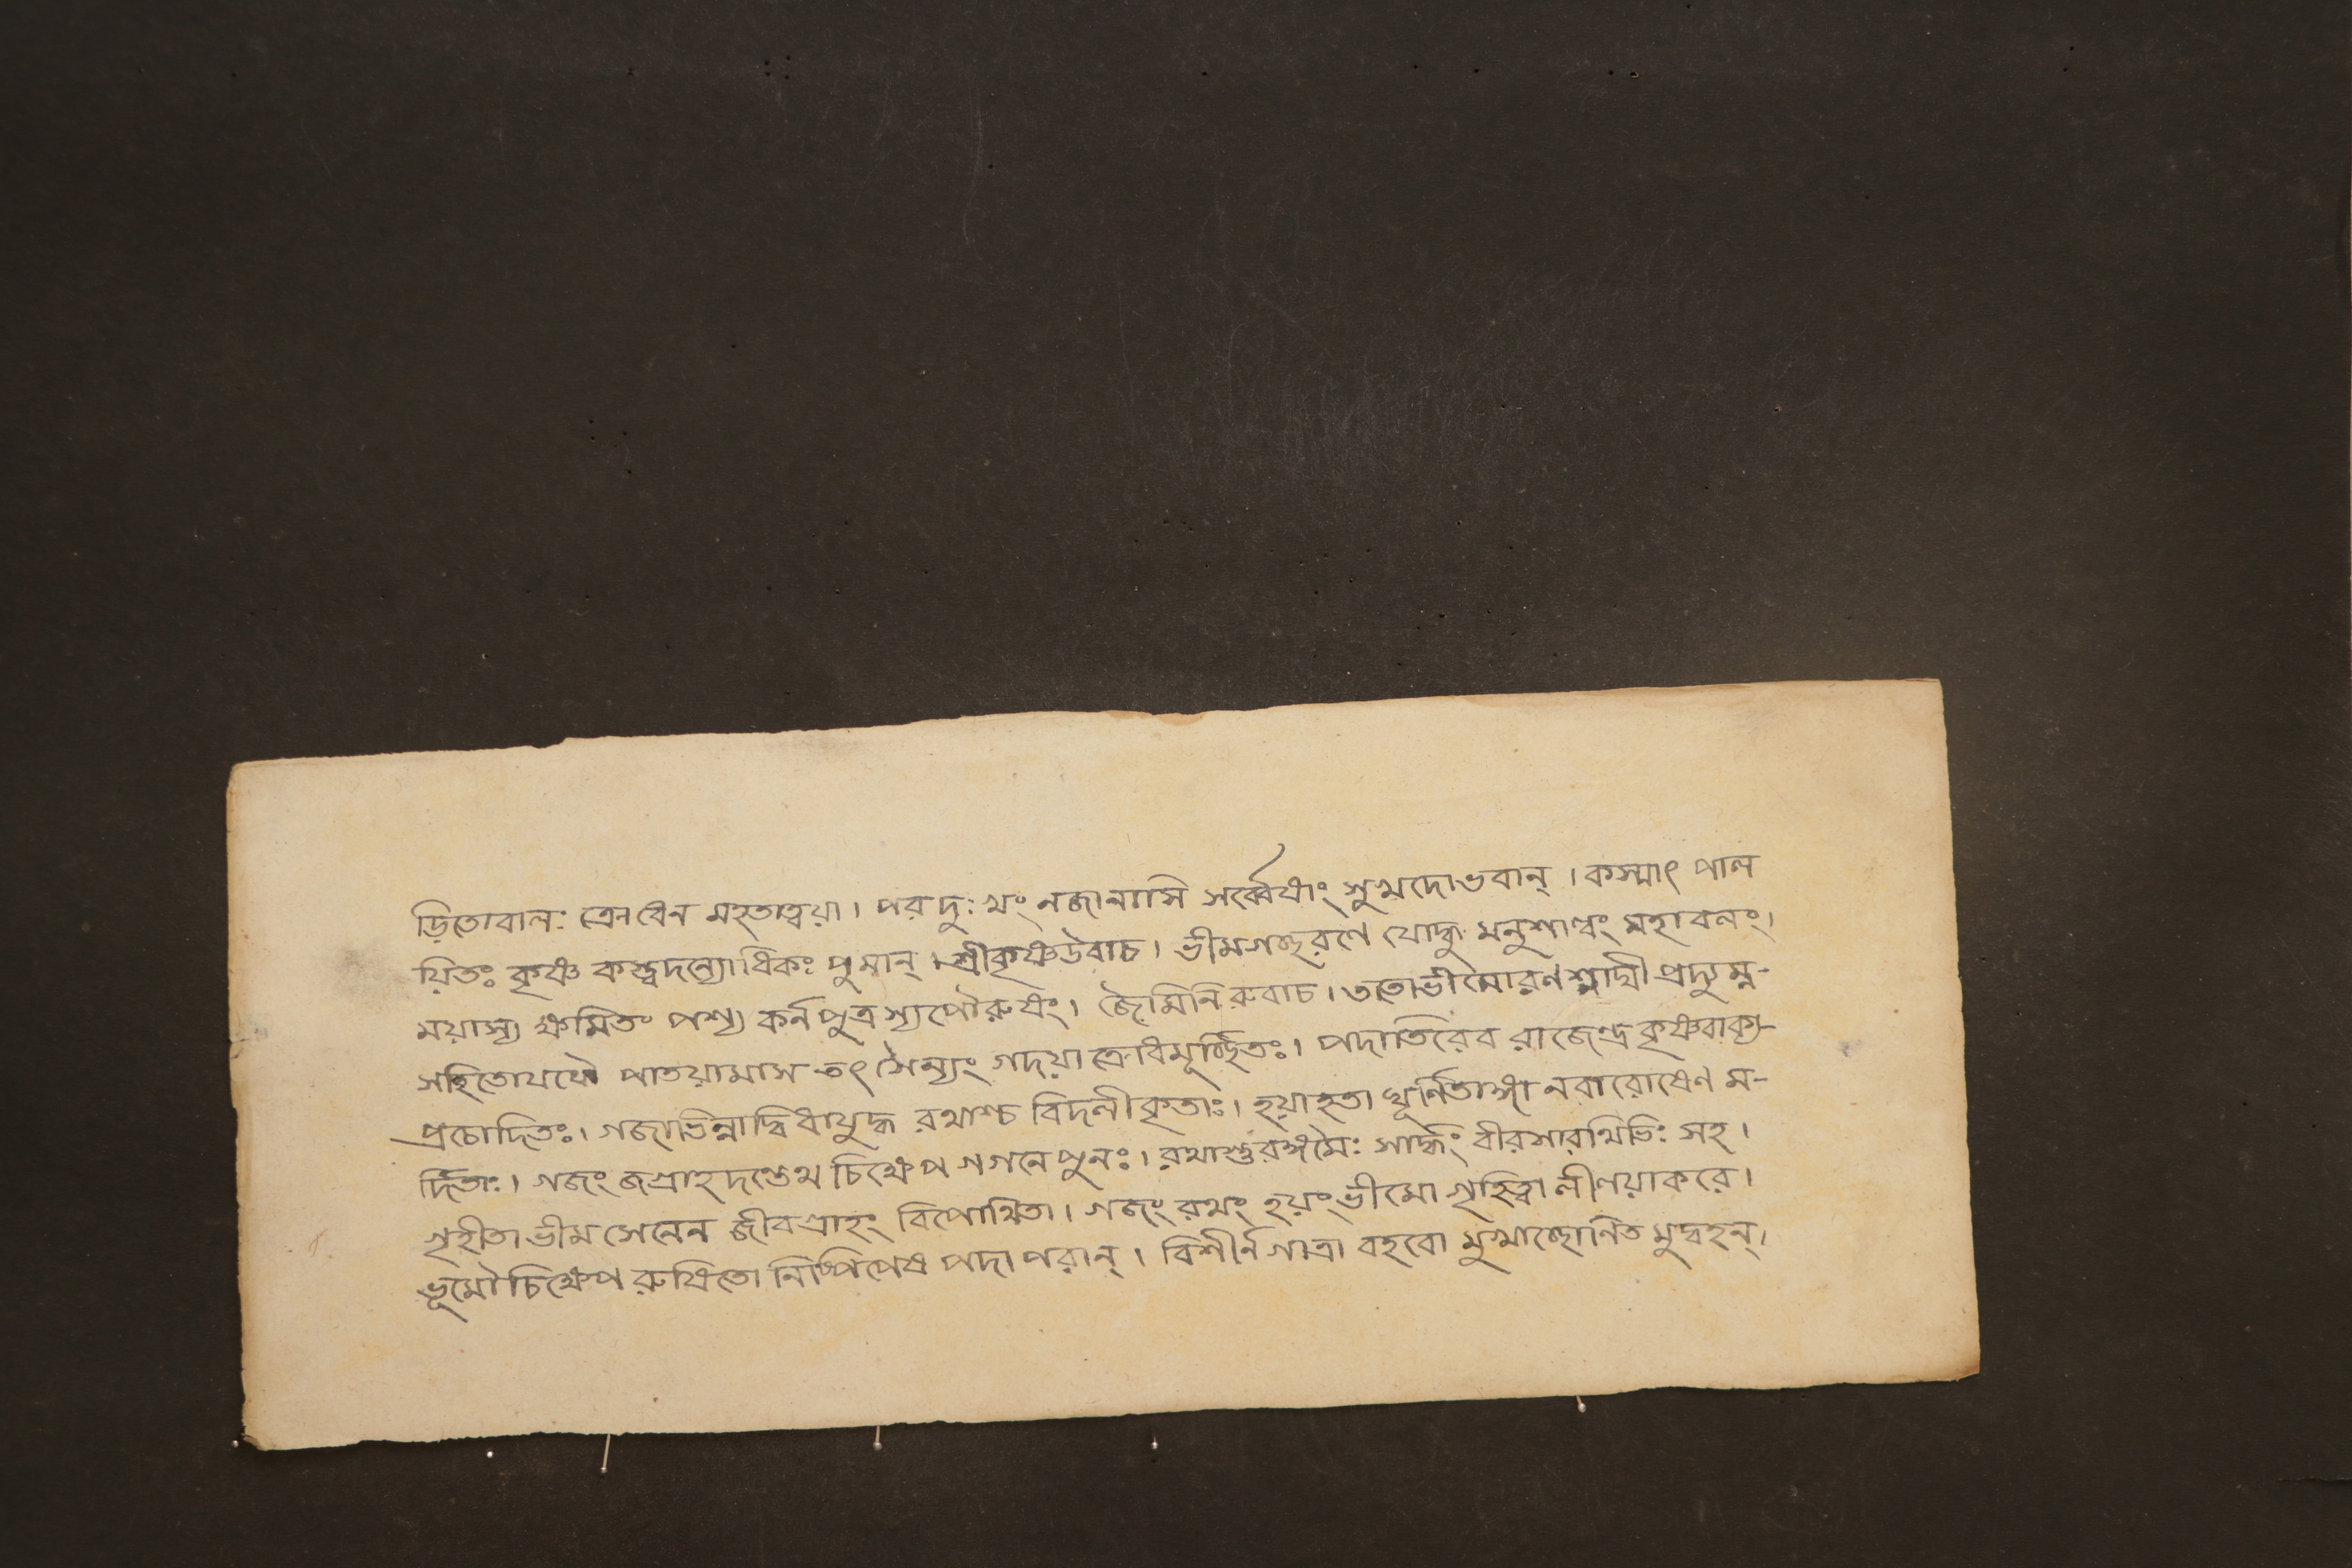 ড়িতোবালঃ ক্রোধেন মহতাত্বয়া। পরদুঃখং নজানাসি সর্ব্বেষাং সুখদোভবান্। কস্মাৎ পাল
য়িতঃ কৃষ্ণ কস্ত্বদন্যোধিকঃ পুমান্। শ্রীকৃষ্ণউবাচ। ভীমগচ্ছরণে যোদ্ধু মনুশাল্বং মহাবলং।
ময়াস্য ক্ষমিতং পশ্য কর্নপুত্রস্যপৌরুষং। জৈমিনিরুবাচ। ততোভীমোরণশ্লাঘী প্রদ্যুম্ন-
সহিতোযযৌ পাতয়ামাস তৎ সৈন্যং গদয়া ক্রোধমূর্চ্ছিতঃ। পদাতিরেব রাজেন্দ্র কৃষ্ণবাক্য-
প্রচোদিতঃ। গজাভিন্নাদ্বিধাযুদ্ধ রথাশ্চ বিদলীকৃতাঃ। হয়াহতা ঘূর্ণিতাঙ্গা নরারোষেণ ম-
র্দিতাঃ। গজং জগ্রাহ দণ্ডেথ চিক্ষেপ গগনে পুনঃ। রথাশুরঙ্গমৈঃ সার্দ্ধং বীরসারথিভিঃ সহ।
গৃহীতা ভীমসেনেন জীবগ্রাহং বিপোথিতা। গজং রথং হয়ং ভীমো গৃহিত্বা লীলয়াকরে।
ভূমৌচিক্ষেপ রুষিতো নিষ্পিপেষ পদাপরান্। বিশীর্নগাত্রা বহবো মুখাচ্ছোনিত মুদ্বহন্।